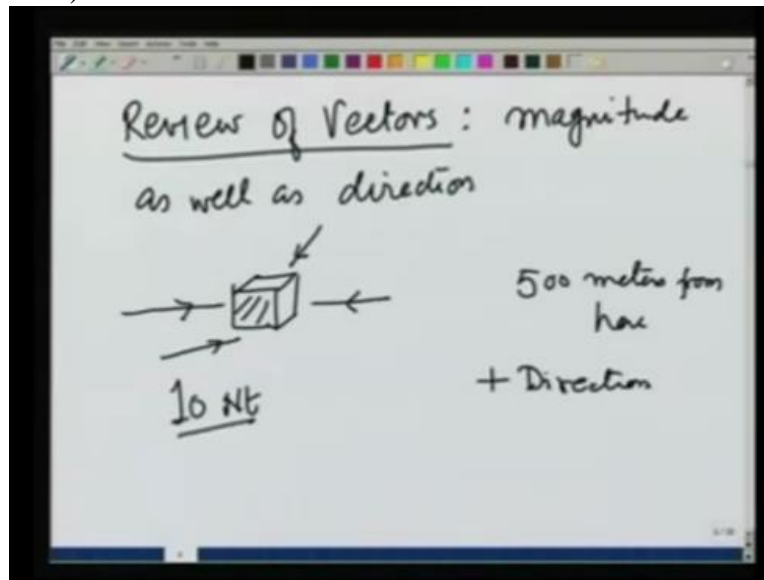 Review of Vectors : magnitude
as well as direction
500 meters from
here
10 Nt
+ Direction